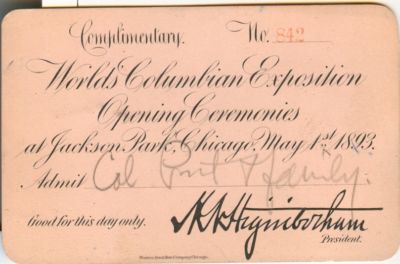 Complimentary. No. 842
World's Columbian Exposition
Opening Ceremonies
at Jackson Park, Chicago, May 1st 1893.
Admit Col & family.
Good for this day only. H. N. Higinbotham
President.
Western Bank Note Company Chicago.